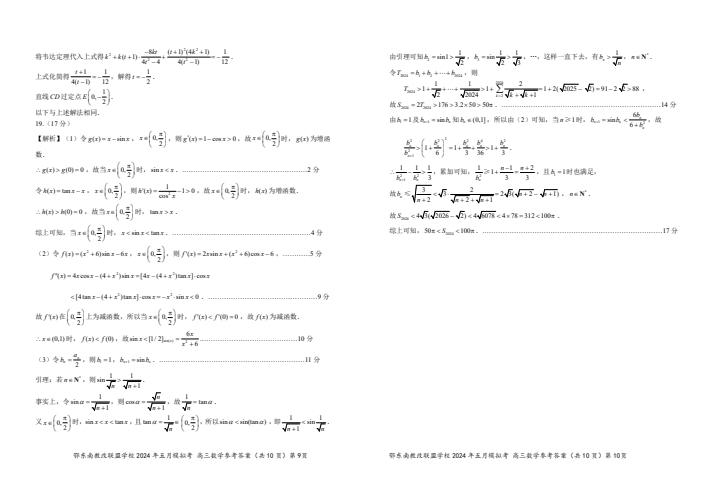 将韦达定理代入上式得 k²+k(t+1)·(-8kt)/(4t²-4)+(t+1)²(4k²+1)/(4(t²-1))=-1/12.
上式化简得 (t+1)/(4(t-1))=-1/12，解得 t=-1/2.
直线CD过定点 E(0,-1/2).
以下与上述解法相同.
19.（17分）
【解析】（1）令 g(x)=x-sin x，x∈(0,π/2)，则 g'(x)=1-cos x>0，故 x∈(0,π/2) 时，g(x)为增函
数.
∴g(x)>g(0)=0，故当 x∈(0,π/2) 时，sin x<x. ……2分
令 h(x)=tan x-x，x∈(0,π/2)，则 h'(x)=1/cos²x-1>0，故 x∈(0,π/2) 时，h(x)为增函数.
∴h(x)>h(0)=0，故当 x∈(0,π/2) 时，tan x>x.
综上可知，当 x∈(0,π/2) 时，x<sin x<tan x. ……4分
（2）令 f(x)=(x²+6)sin x-6x，x∈(0,π/2)，则 f'(x)=2x sin x+(x²+6)cos x-6，……5分
f''(x)=4x cos x-(4+x²)sin x=[4x-(4+x²)tan x]·cos x
<[4tan x-(4+x²)tan x]·cos x=-x²·sin x<0. ……9分
故 f'(x) 在 (0,π/2) 上为减函数，所以当 x∈(0,π/2) 时，f'(x)<f'(0)=0，故 f(x)为减函数.
∴x∈(0,1)时，f(x)<f(0)，故 sin x<[1/2] 6x/(x²+6) ……10分
（3）令 bₙ=aₙ/2，则 b₁=1，bₙ₊₁=sin bₙ. ……11分
引理：若 n∈N*，则 sin 1/√n>1/√(n+1).
事实上，令 sin α=1/√(n+1)，则 cos α=√n/√(n+1)，故 1/√n=tan α.
又 x∈(0,π/2) 时，sin x<x<tan x，且 tan α=1/√n∈(0,π/2)，所以 sin α<sin(tan α)，即 1/√(n+1)<sin 1/√n.
鄂东南教改联盟学校 2024 年五月模拟考 高三数学参考答案（共 10 页）第 9页
由引理可知 b₂=sin1>1/√2，b₃=sin 1/√2>1/√3，…，这样一直下去，有 bₙ>1/√n，n∈N*.
令 T₂₀₂₄=b₁+b₂+⋯+b₂₀₂₄，则
T₂₀₂₄>1+1/√2+⋯+1/√2024>1+∑2/(√k+√(k+1))=1+2(√2025-√2)=91-2√2>88，
故 S₂₀₂₄=2T₂₀₂₄>176>3.2×50>50π. ……14分
由 b₁=1 及 bₙ₊₁=sin bₙ 知 bₙ∈(0,1]，所以由（2）可知，当 n≥1时，bₙ₊₁=sin bₙ<6bₙ/(6+bₙ²)，故
bₙ²/bₙ₊₁²>(1+bₙ²/6)²=1+bₙ²/3+bₙ⁴/36>1+bₙ²/3.
∴1/bₙ₊₁²-1/bₙ²>1/3，累加可知，1/bₙ²≥1+(n-1)/3=(n+2)/3，且 b₁=1时也满足，
故 bₙ≤√(3/(n+2))<√3·2/(√(n+2)+√(n+1))=2√3(√(n+2)-√(n+1))，n∈N*.
故 S₂₀₂₄<4√3(√2026-√2)<4√6078<4×78=312<100π.
综上可知，50π<S₂₀₂₄<100π. ……17分
鄂东南教改联盟学校 2024 年五月模拟考 高三数学参考答案（共 10 页）第 10页